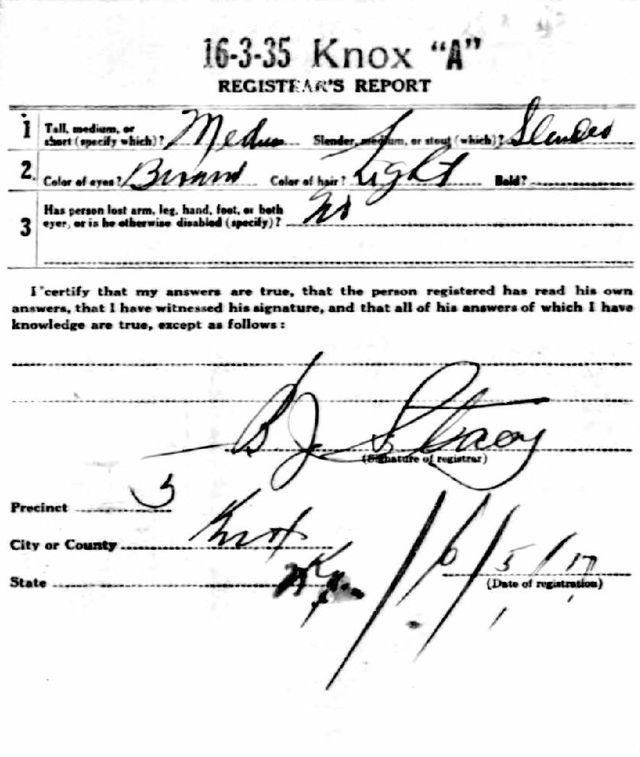 16-3-35 Knox "A"
REGISTRAR'S REPORT
1 Tall, medium, or short (specify which)? Medium Slender, medium, or stout (which)? Slender
2 Color of eyes? Brown Color of hair? Light Bald?
3 Has person lost arm, leg, hand, foot, or both
eyes, or is he otherwise disabled (specify)? No
I certify that my answers are true, that the person registered has read his own
answers, that I have witnessed his signature, and that all of his answers of which I have
knowledge are true, except as follows:
B. J. Stacy
(Signature of registrar)
Precinct 5
City or County Knox
State Ky 6/5/17
(Date of registration)